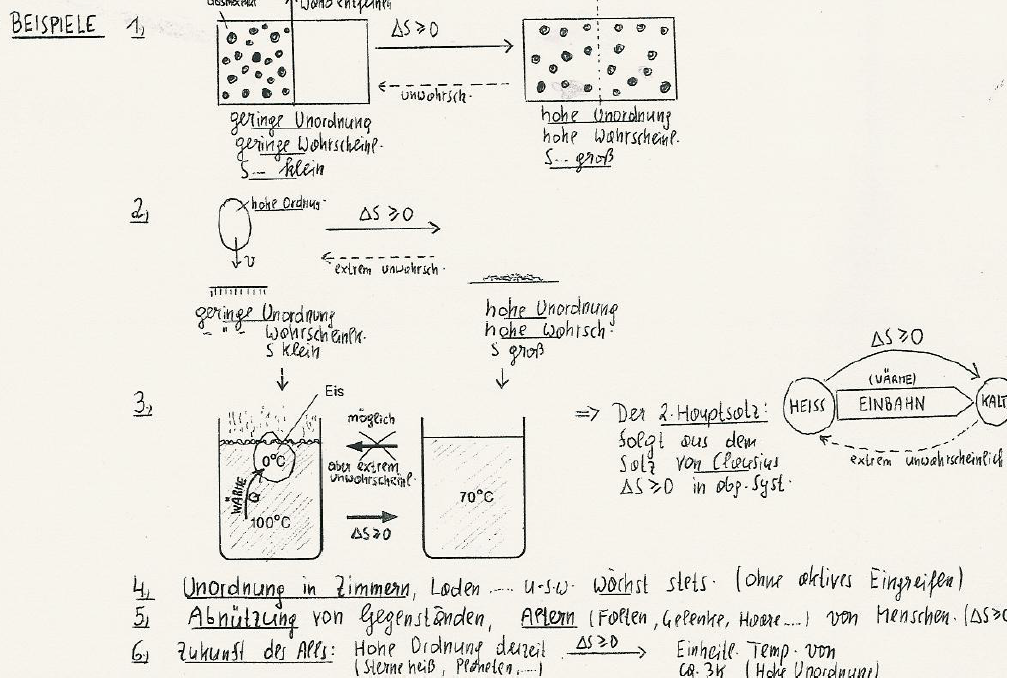 Wand entfernen
BEISPIELE 1,
ΔS ≥ 0
unwahrsch.
geringe Unordnung
geringe Wahrscheinl.
S -- klein
hohe Unordnung
hohe Wahrscheinl.
S -- groß
2,
hohe Ordnung
ΔS ≥ 0
v
extrem unwahrsch.
geringe Unordnung
- " - Wahrscheinlk.
S klein
hohe Unordnung
hohe Wahrsch.
S groß
3,
Eis
möglich
aber extrem
unwahrscheinl.
0°C
WÄRME
Q
100°C
ΔS ≥ 0
70°C
=> Der 2. Hauptsatz:
folgt aus dem
Satz von Clausius
ΔS ≥ 0 in abg. Syst.
ΔS ≥ 0
(WÄRME)
HEISS EINBAHN KALT
extrem unwahrscheinlich
4, Unordnung in Zimmern, Laden .... u.s.w. wächst stets. (ohne aktives Eingreifen)
5, Abnützung von Gegenständen, Altern (Falten, Gelenke, Haare....) von Menschen. (ΔS ≥ 0
6, Zukunft des Alls: Hohe Ordnung derzeit ΔS ≥ 0 Einheitl. Temp. von
(Sterne heiß, Planeten,...) ca. 3K (Hohe Unordnung)